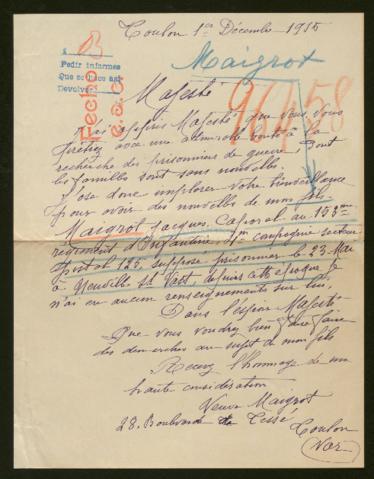 Toulon 1er Décembre 1915
Pedir informes
Que se
Devolver
Fecho
Maigrot
96458
Majesté
Majesté que Vous, Vous
prêtez avec une admirable bonté à la
recherche des prisonniers de guerre dont
les familles sont sans nouvelles.
J'ose donc implorer votre bienveillance
pour avoir des nouvelles de mon fils
Maigrot Jacques, Caporal au 153me
régiment d'Infanterie, compagnie secteur
postal 125, supposé prisonnier le 23 Mai
à Neuville St Vaast depuis cette époque je
n'ai eu aucun renseignements sur lui.
Dans l'espoir Majesté
Que vous voudrez bien faire
des démarches au sujet de mon fils
Recevez l'hommage de ma
haute considération
Veuve Maigrot
28. Boulevard de Tessé
Toulon
(Var)